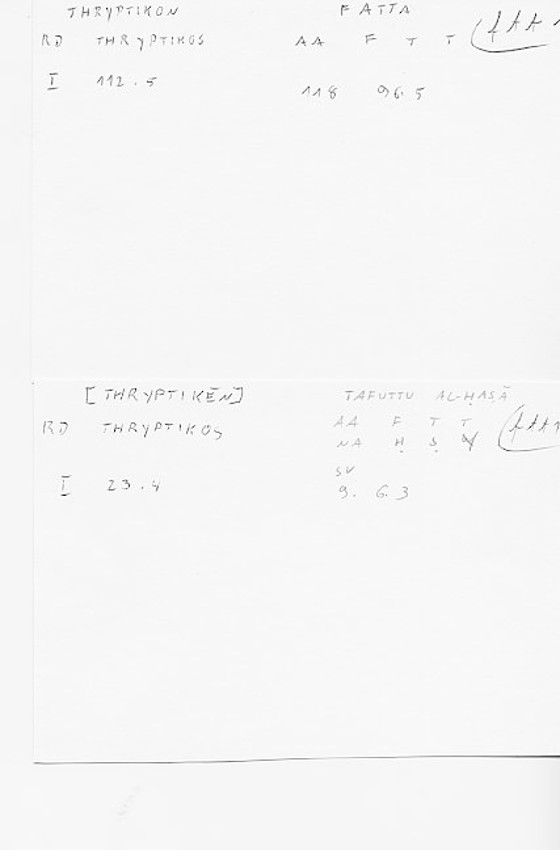 THRYPTIKON FATTA
RD THRYPTIKOS AA F T T
I 112.5 118 96.5
[THRYPTIKĒN] TAFUTTU AL-ḤAṢĀ
RD THRYPTIKOS AA F T T
NA Ḥ Ṣ
SV
I 23.4 9. 6.3